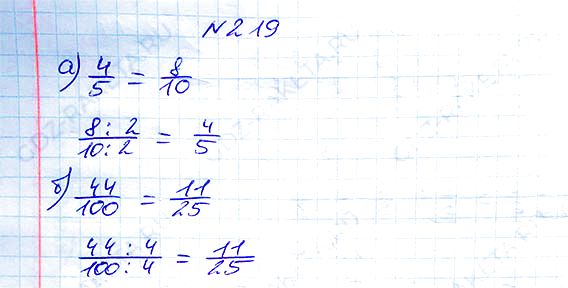 №219
а) 4/5 = 8/10
8:2/10:2 = 4/5
б) 44/100 = 11/25
44:4/100:4 = 11/25